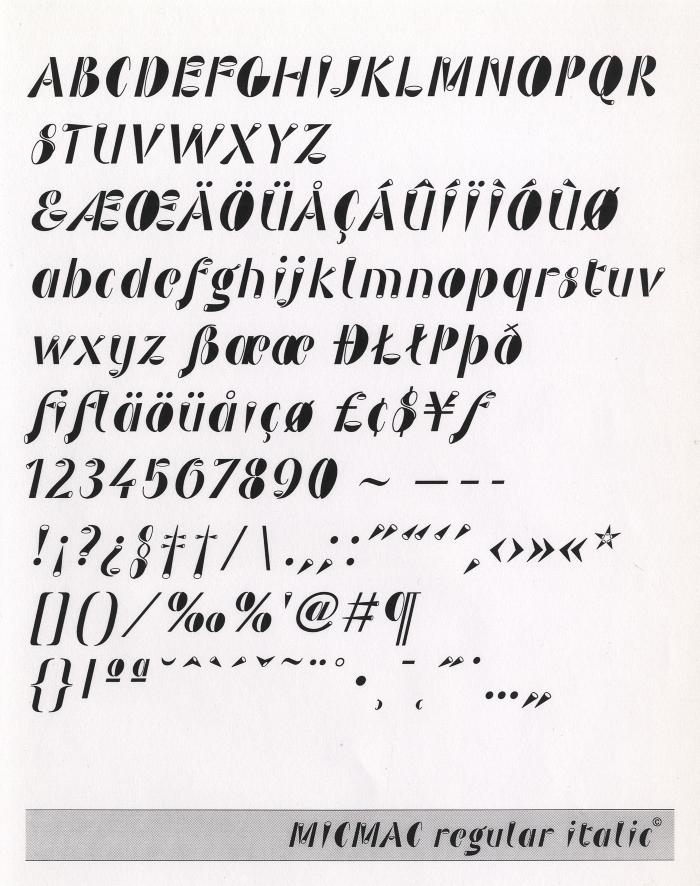 ABCDEFGHIJKLMNOPQR
STUVWXYZ
&ÆŒÄÖÜÅÇÁÛÍÏÌÓÙØ
abcdefghijklmnopqrstuv
wxyz ßæœ ÐŁłÞþð
fifläöüåıçø £¢$¥ƒ
1234567890 ~ —--
!¡?¿§‡†/\.,„;:”“‘’‚‹›»«*
[]()/‰%'@#¶
{}|ºª˘ˆ`´ˇ˜¨˚·¸¯˛˝˙…„
MICMAC regular italic©